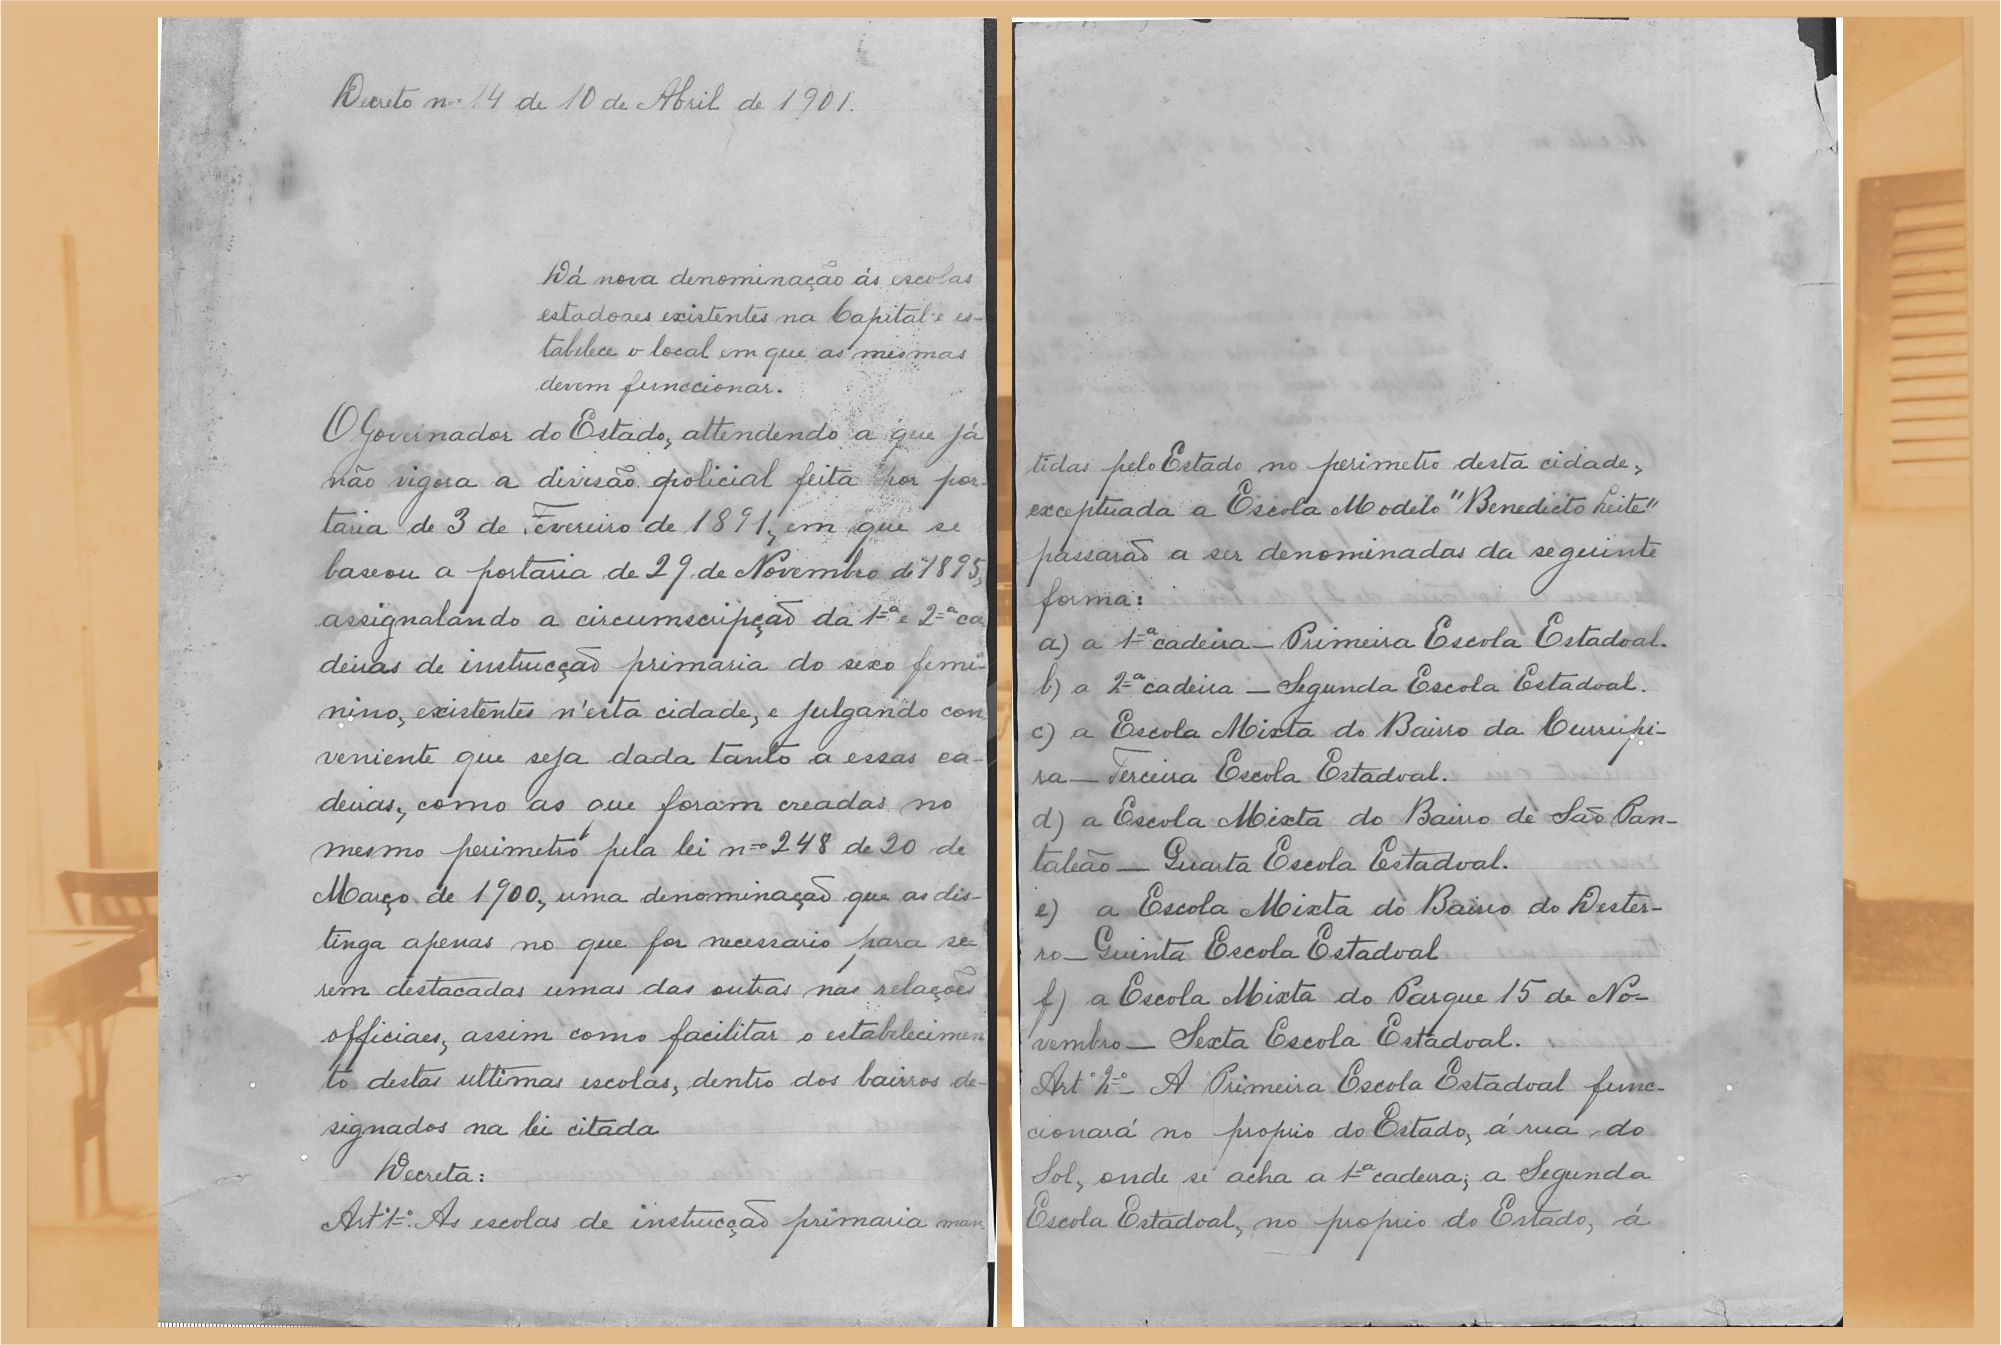 Decreto nº 14 de 10 de Abril de 1901.
Dá nova denominação ás escolas
estadoaes existentes na Capital e es-
tabelece o local em que as mesmas
devem funccionar.
O Governador do Estado, attendendo a que já
não vigora a divisão policial feita por por-
taria de 3 de Fevereiro de 1891, em que se
baseou a portaria de 29 de Novembro de 1895,
assignalando a circumscripção da 1ª e 2ª ca
deiras de instrucção primaria do sexo femi-
nino, existentes n'esta cidade, e julgando con
veniente que seja dada tanto a essas ca-
deiras, como as que foram creadas no
mesmo perimetro pela lei nº 248 de 20 de
Março de 1900, uma denominação que as dis-
tinga apenas no que for necessario para se-
rem destacadas umas das outras nas relações
officiaes, assim como facilitar o estabelecimen
to destas ultimas escolas, dentro dos bairros de-
signados na lei citada
Decreta:
Artº 1º. As escolas de instrucção primaria man
tidas pelo Estado no perimetro desta cidade,
exceptuada a Escola Modelo "Benedicto Leite"
passarão a ser denominadas da seguinte
forma:
a) a 1ª cadeira — Primeira Escola Estadoal.
b) a 2ª cadeira — Segunda Escola Estadoal.
c) a Escola Mixta do Bairro da Currupi-
ra — Terceira Escola Estadoal.
d) a Escola Mixta do Bairro de São Pan-
taleão — Quarta Escola Estadoal.
e) a Escola Mixta do Bairro do Dester-
ro — Quinta Escola Estadoal
f) a Escola Mixta do Parque 15 de No-
vembro — Sexta Escola Estadoal.
Artº 2º — A Primeira Escola Estadoal func-
cionará no proprio do Estado, á rua do
Sol, onde se acha a 1ª cadeira; a Segunda
Escola Estadoal, no proprio do Estado, á